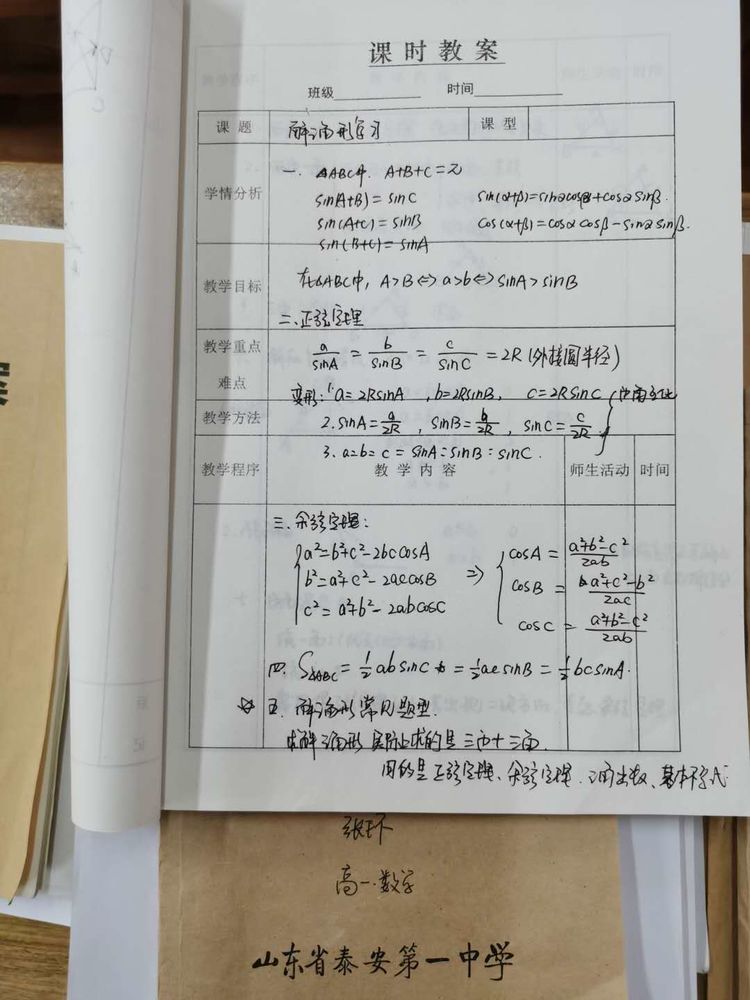 课时教案
班级 时间
课题 解三角形复习 课型
学情分析
一. △ABC中. A+B+C=π
sin(A+B)=sinC sin(α+β)=sinαcosβ+cosαsinβ.
sin(A+C)=sinB cos(α+β)=cosαcosβ-sinαsinβ.
sin(B+C)=sinA
教学目标 在△ABC中, A>B⇔a>b⇔sinA>sinB
二、正弦定理
教学重点 a/sinA = b/sinB = c/sinC = 2R (外接圆半径)
难点
变形: 1. a=2RsinA, b=2RsinB, c=2RsinC
教学方法 2. sinA=a/2R, sinB=b/2R, sinC=c/2R
3. a:b:c=sinA:sinB:sinC.
教学程序 教学内容 师生活动 时间
三. 余弦定理:
a²=b²+c²-2bccosA ⇒ cosA=a²+b²-c²/2ab
b²=a²+c²-2accosB cosB=a²+c²-b²/2ac
c²=a²+b²-2abcosC cosC=a²+b²-c²/2ab
四. S△ABC=½absinC=½acsinB=½bcsinA.
五. 解三角形常见题型.
求解三角形 实际上求的是三边+三角.
用的是正弦定理、余弦定理、三角函数、基本不等式
张环
高一.数学
山东省泰安第一中学